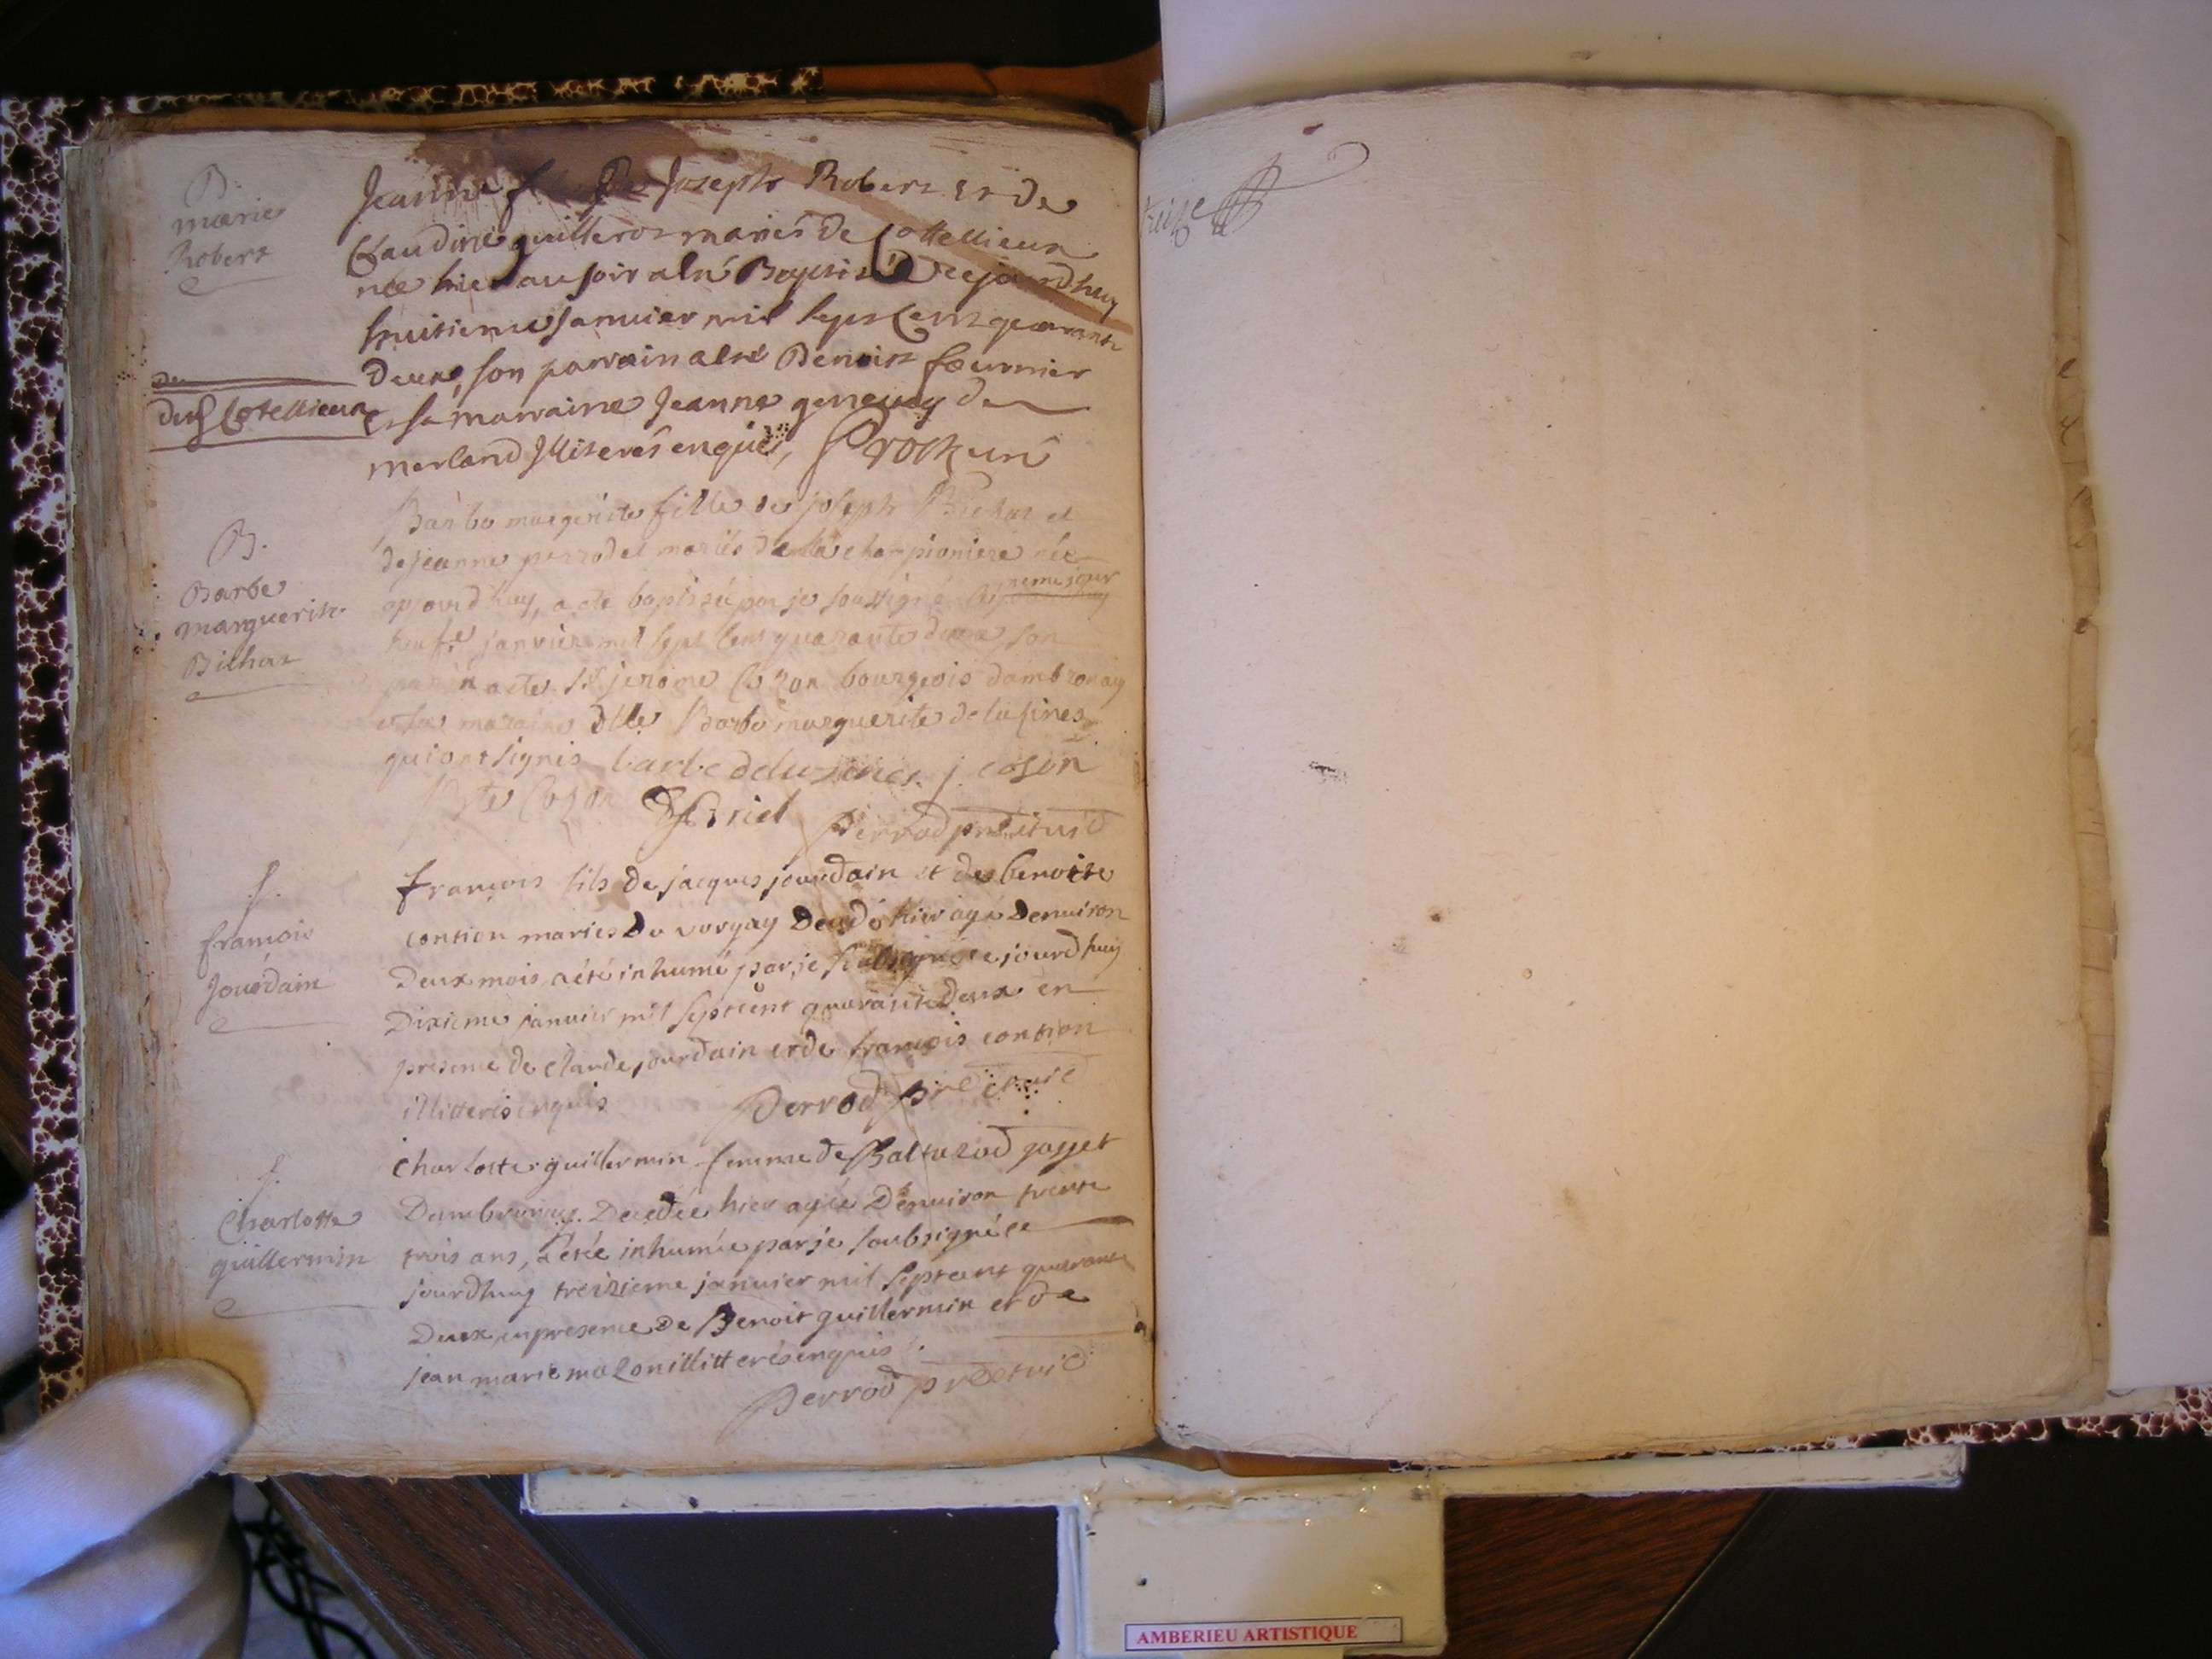 B.
marie
Robert
Jeanne Joseph Robert et de
Claudine guilleros mariés de Cottellieux
née hier au soir a été Baptisée cejourdhuy
huitieme Janvier mil sept Cent quarante
deux, son parrain a été Benoist fournier
et sa marraine Jeanne genevay de
merland Illiterés enquis,
Cotellieux
B.
Barbe
marguerite
Bichat
Barbe marguerite fille de joseph Bichat et
de jeanne perrodet mariés de la championiere née
aujourdhuy, a été baptisée par je soussigné
janvier mil sept cent quarante deux son
parin a été Sr jerome Cozon bourgeois dambronay
et sa maraine dlle Barbe marguerite de lusines
qui ont signés barbe delusines j. cosón
Cozon Perrod
f.
françois
Jourdain
françois fils de jacques jourdain et de benoite
contion mariés du vorgay décédé hier agé denviron
deux mois, a été inhumé par je soubsigné ce jourdhuy
Dixieme janvier mil septcent quarante deux en
presence de claude jourdain et de françois contion
illitterés enquis Perrod
f.
Charlotte
guillermin
charlotte guillermin femme de Baltazad gojjet
Dambronay. Décédée hier agée Denviron trente
trois ans, a étée inhumée par je soubsigné ce
jourdhuy treizieme janvier mil septcent quarante
Deux, en presence de Benoit guillermin et de
jean marie mazon illitterés enquis
Perrod
treize
AMBERIEU ARTISTIQUE